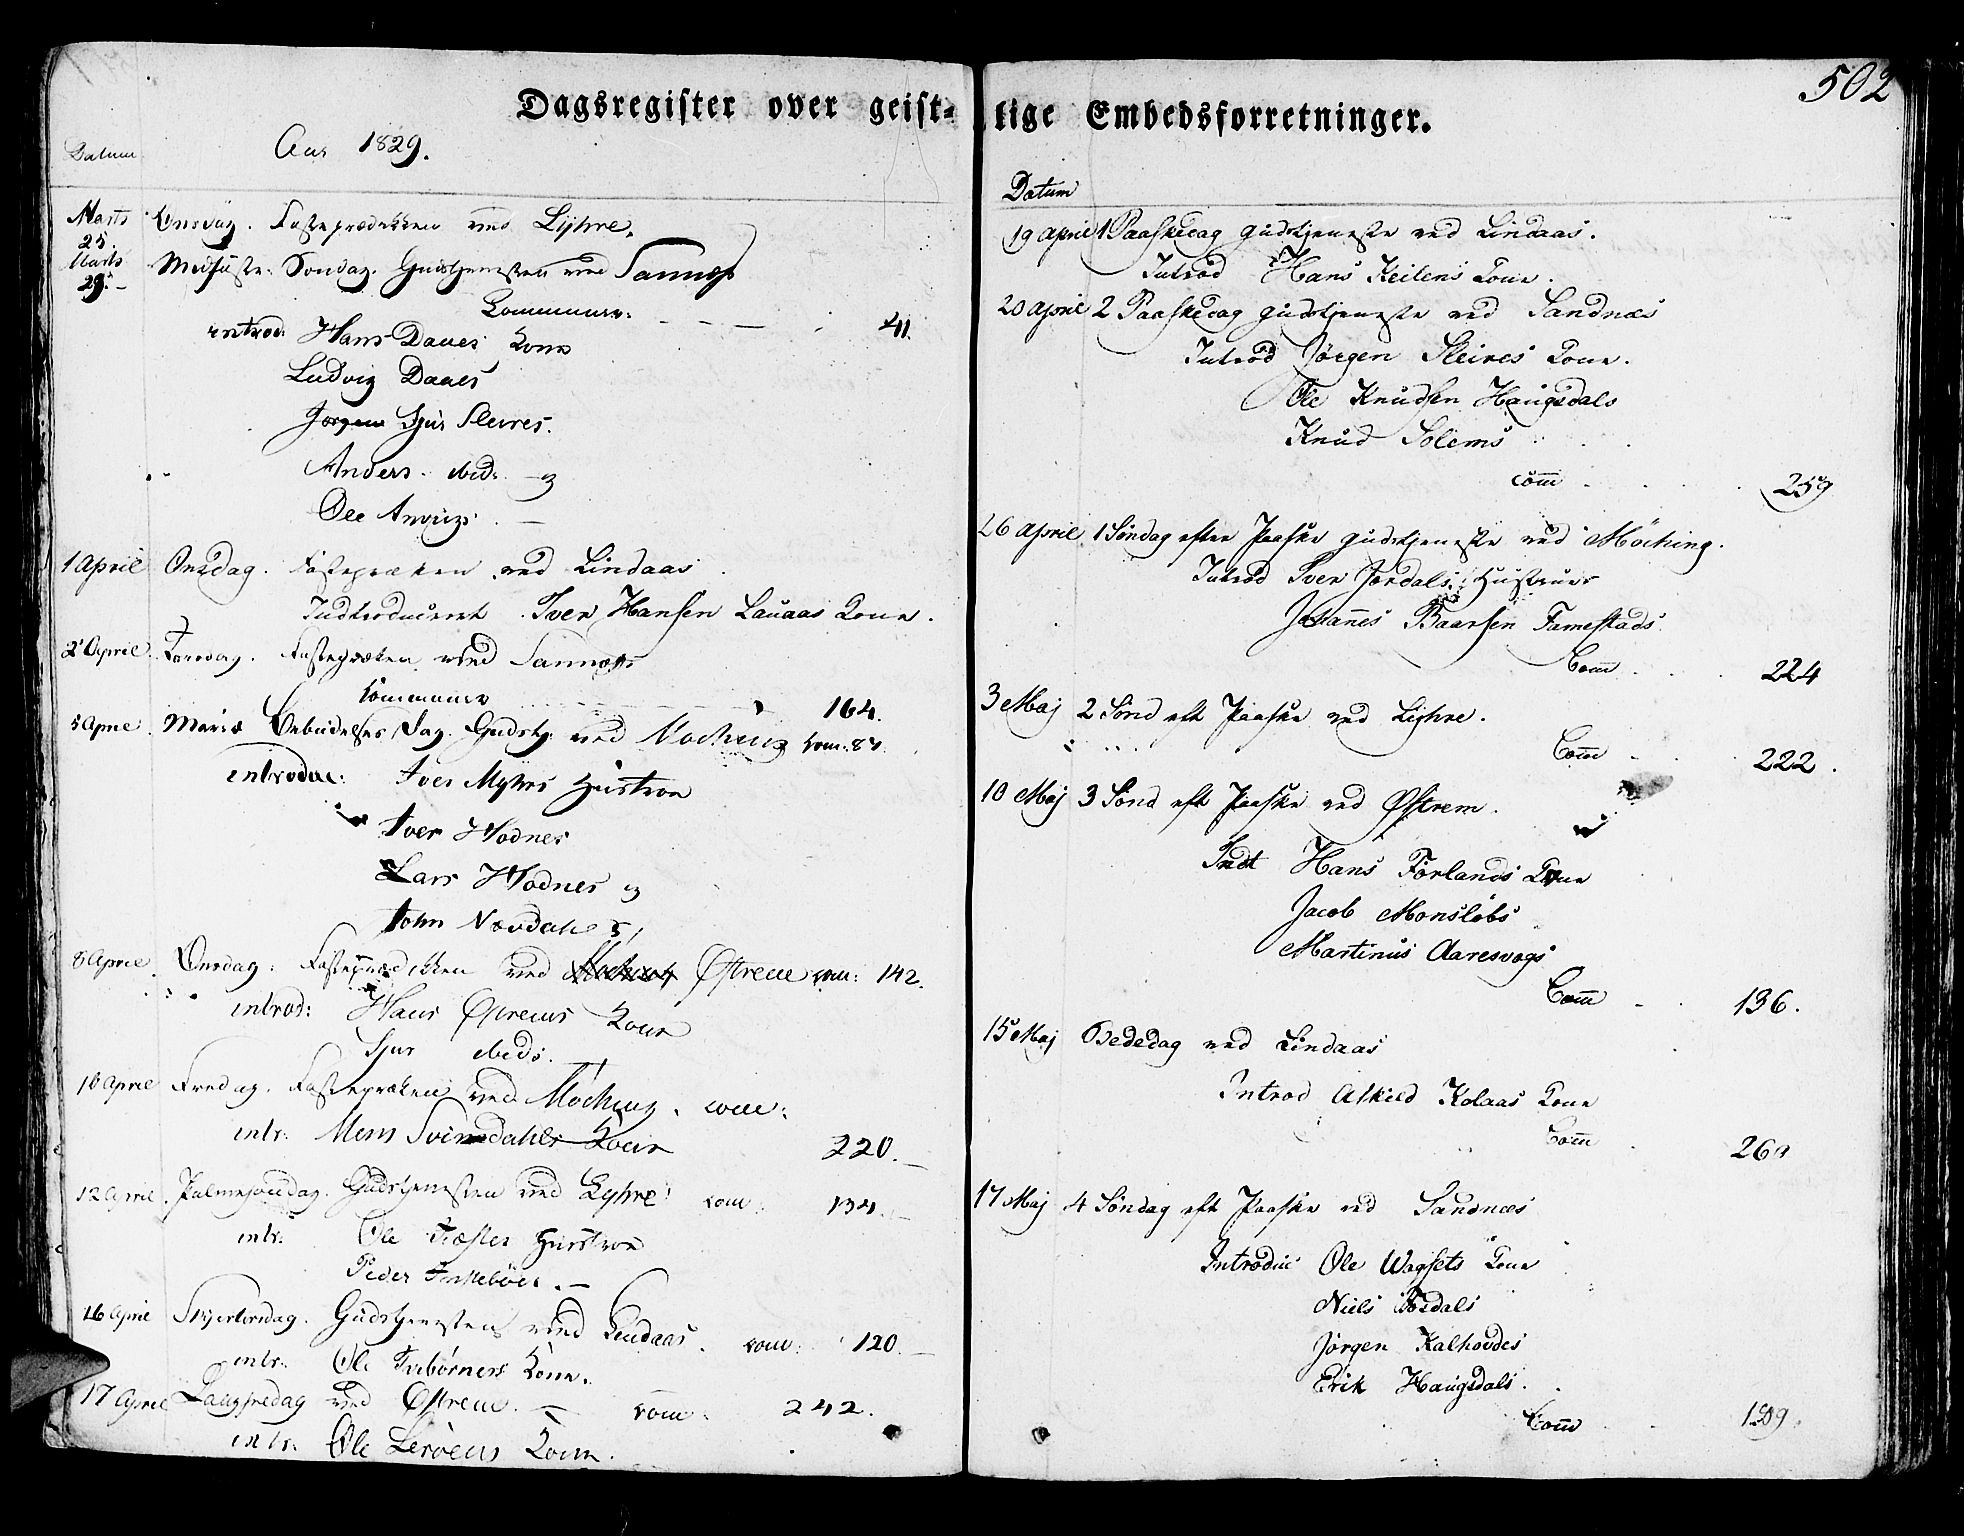 Dagsregister over geist-
Datum
Aar 1829.
Marts 25. Onsdag. Fasteprædikken ved Lyhre.
Marts 29. Midfaste Søndag. Gudstjenesten ved Sannæs
Communic: 41.
introd: Hans Daaes Kone
Ludvig Daaes
Sjur Sleires.
Anders ibid: og
Ole
1 April Onsdag. Fastepræken ved Lindaas.
Indtroduceret Iver Hansen Lauaas Kone.
2 April Torsdag. Fastepræken ved Sannæs
Communic 164.
5 April Mariæ Bebudelses Dag. Gudstj. ved Mocking Com: 87.
introduc: Iver Myhres Hustroe
Iver Hodnes
Lars Hodnes og
John Nævdahls
8 April Onsdag: Fasteprædikken ved Østrem com: 142.
introd: Hans Østrems Kone
Sjur ibid:
10 April Fredag. Fastepræken ved Mocking. com:
intr: Mons Svindahls Kone 220.
12 April Palmesøndag. Gudstjenesten ved Lyhre com: 134.
intr: Ole Hustroe
Peder
16 April Skjertorsdag. Gudstjenesten ved Lindaas. com: 120.
intr: Ole Kone.
17 April Langfredag ved Østrem. com: 242.
intr: Ole Lerøens Kone.
502
lige Embedsforretninger.
Datum
19 April 1 Paaskedag Gudstjeneste ved Lindaas.
Introd Hans Keilens Kone.
20 April 2 Paaskedag Gudstjeneste ved Sandnæs
Introd Jørgen Sleires Kone.
Ole Knudsen Haugsdals
Knud Solems
Com̄ 259
26 April 1 Søndag efter Paaske Gudstjeneste ved Mocking.
Introd Iver Jordals Hustrue
Johannes Baarsen Famestads
Com̄ 224
3 Maj 2 Sønd eft Paaske ved Lyhre.
Com̄ 222.
10 Maj 3 Sønd eft Paaske ved Østrem.
Indt Hans Forlands Kone
Jacob Monsløbs
Martinus Aaresvogs
Com̄ 136.
15 Maj Bededag ved Lindaas
Introd Askild Kolaas Kone
Com̄ 260
17 Maj 4 Søndag eft Paaske ved Sandnæs
Introduc Ole Wagsets Kone
Niels
Jørgen Kalhovdes
Erik Haugsdals.
Com̄